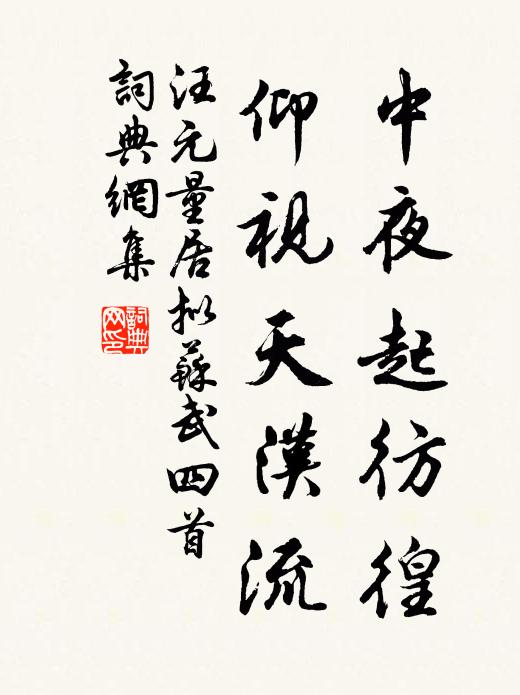 中夜起彷徨
仰視天漢流
汪元量居擬蘇武四首
詞典網集
詞典网印